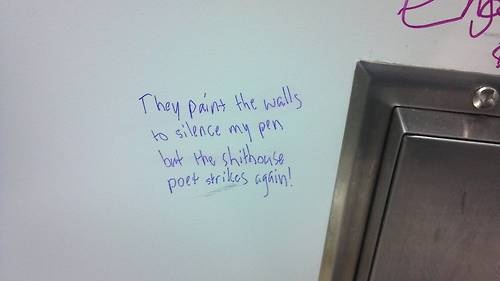 They paint the walls
to silence my pen
but the shithouse
poet strikes again!